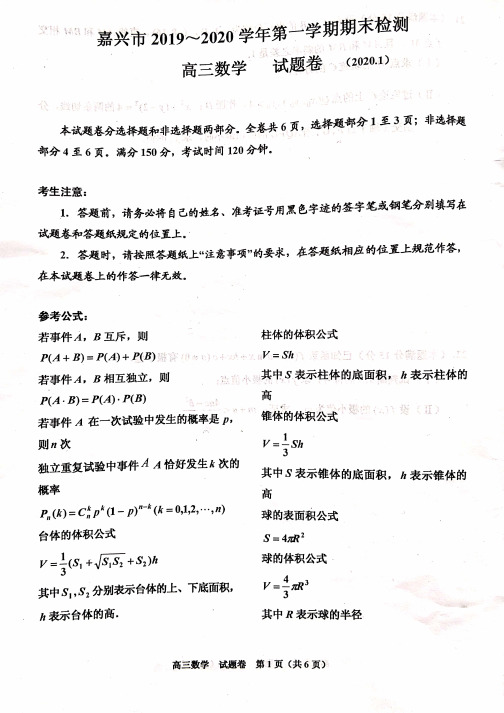 嘉兴市 2019～2020 学年第一学期期末检测
高三数学 试题卷 (2020.1)
本试题卷分选择题和非选择题两部分。全卷共 6 页，选择题部分 1 至 3 页；非选择题
部分 4 至 6 页。满分 150 分，考试时间 120 分钟。
考生注意：
1．答题前，请务必将自己的姓名、准考证号用黑色字迹的签字笔或钢笔分别填写在
试题卷和答题纸规定的位置上。
2．答题时，请按照答题纸上“注意事项”的要求，在答题纸相应的位置上规范作答，
在本试题卷上的作答一律无效。
参考公式：
若事件 A，B 互斥，则
P(A + B) = P(A) + P(B)
若事件 A，B 相互独立，则
P(A · B) = P(A) · P(B)
若事件 A 在一次试验中发生的概率是 p，
则 n 次
独立重复试验中事件 A A 恰好发生 k 次的
概率
Pₙ(k) = Cₙᵏ pᵏ (1 − p)ⁿ⁻ᵏ (k = 0,1,2,⋯,n)
台体的体积公式
V = 1/3 (S₁ + √(S₁S₂) + S₂)h
其中 S₁, S₂ 分别表示台体的上、下底面积，
h 表示台体的高．
柱体的体积公式
V = Sh
其中 S 表示柱体的底面积，h 表示柱体的
高
锥体的体积公式
V = 1/3 Sh
其中 S 表示锥体的底面积，h 表示锥体的
高
球的表面积公式
S = 4πR²
球的体积公式
V = 4/3 πR³
其中 R 表示球的半径
高三数学 试题卷 第 1 页（共 6 页）